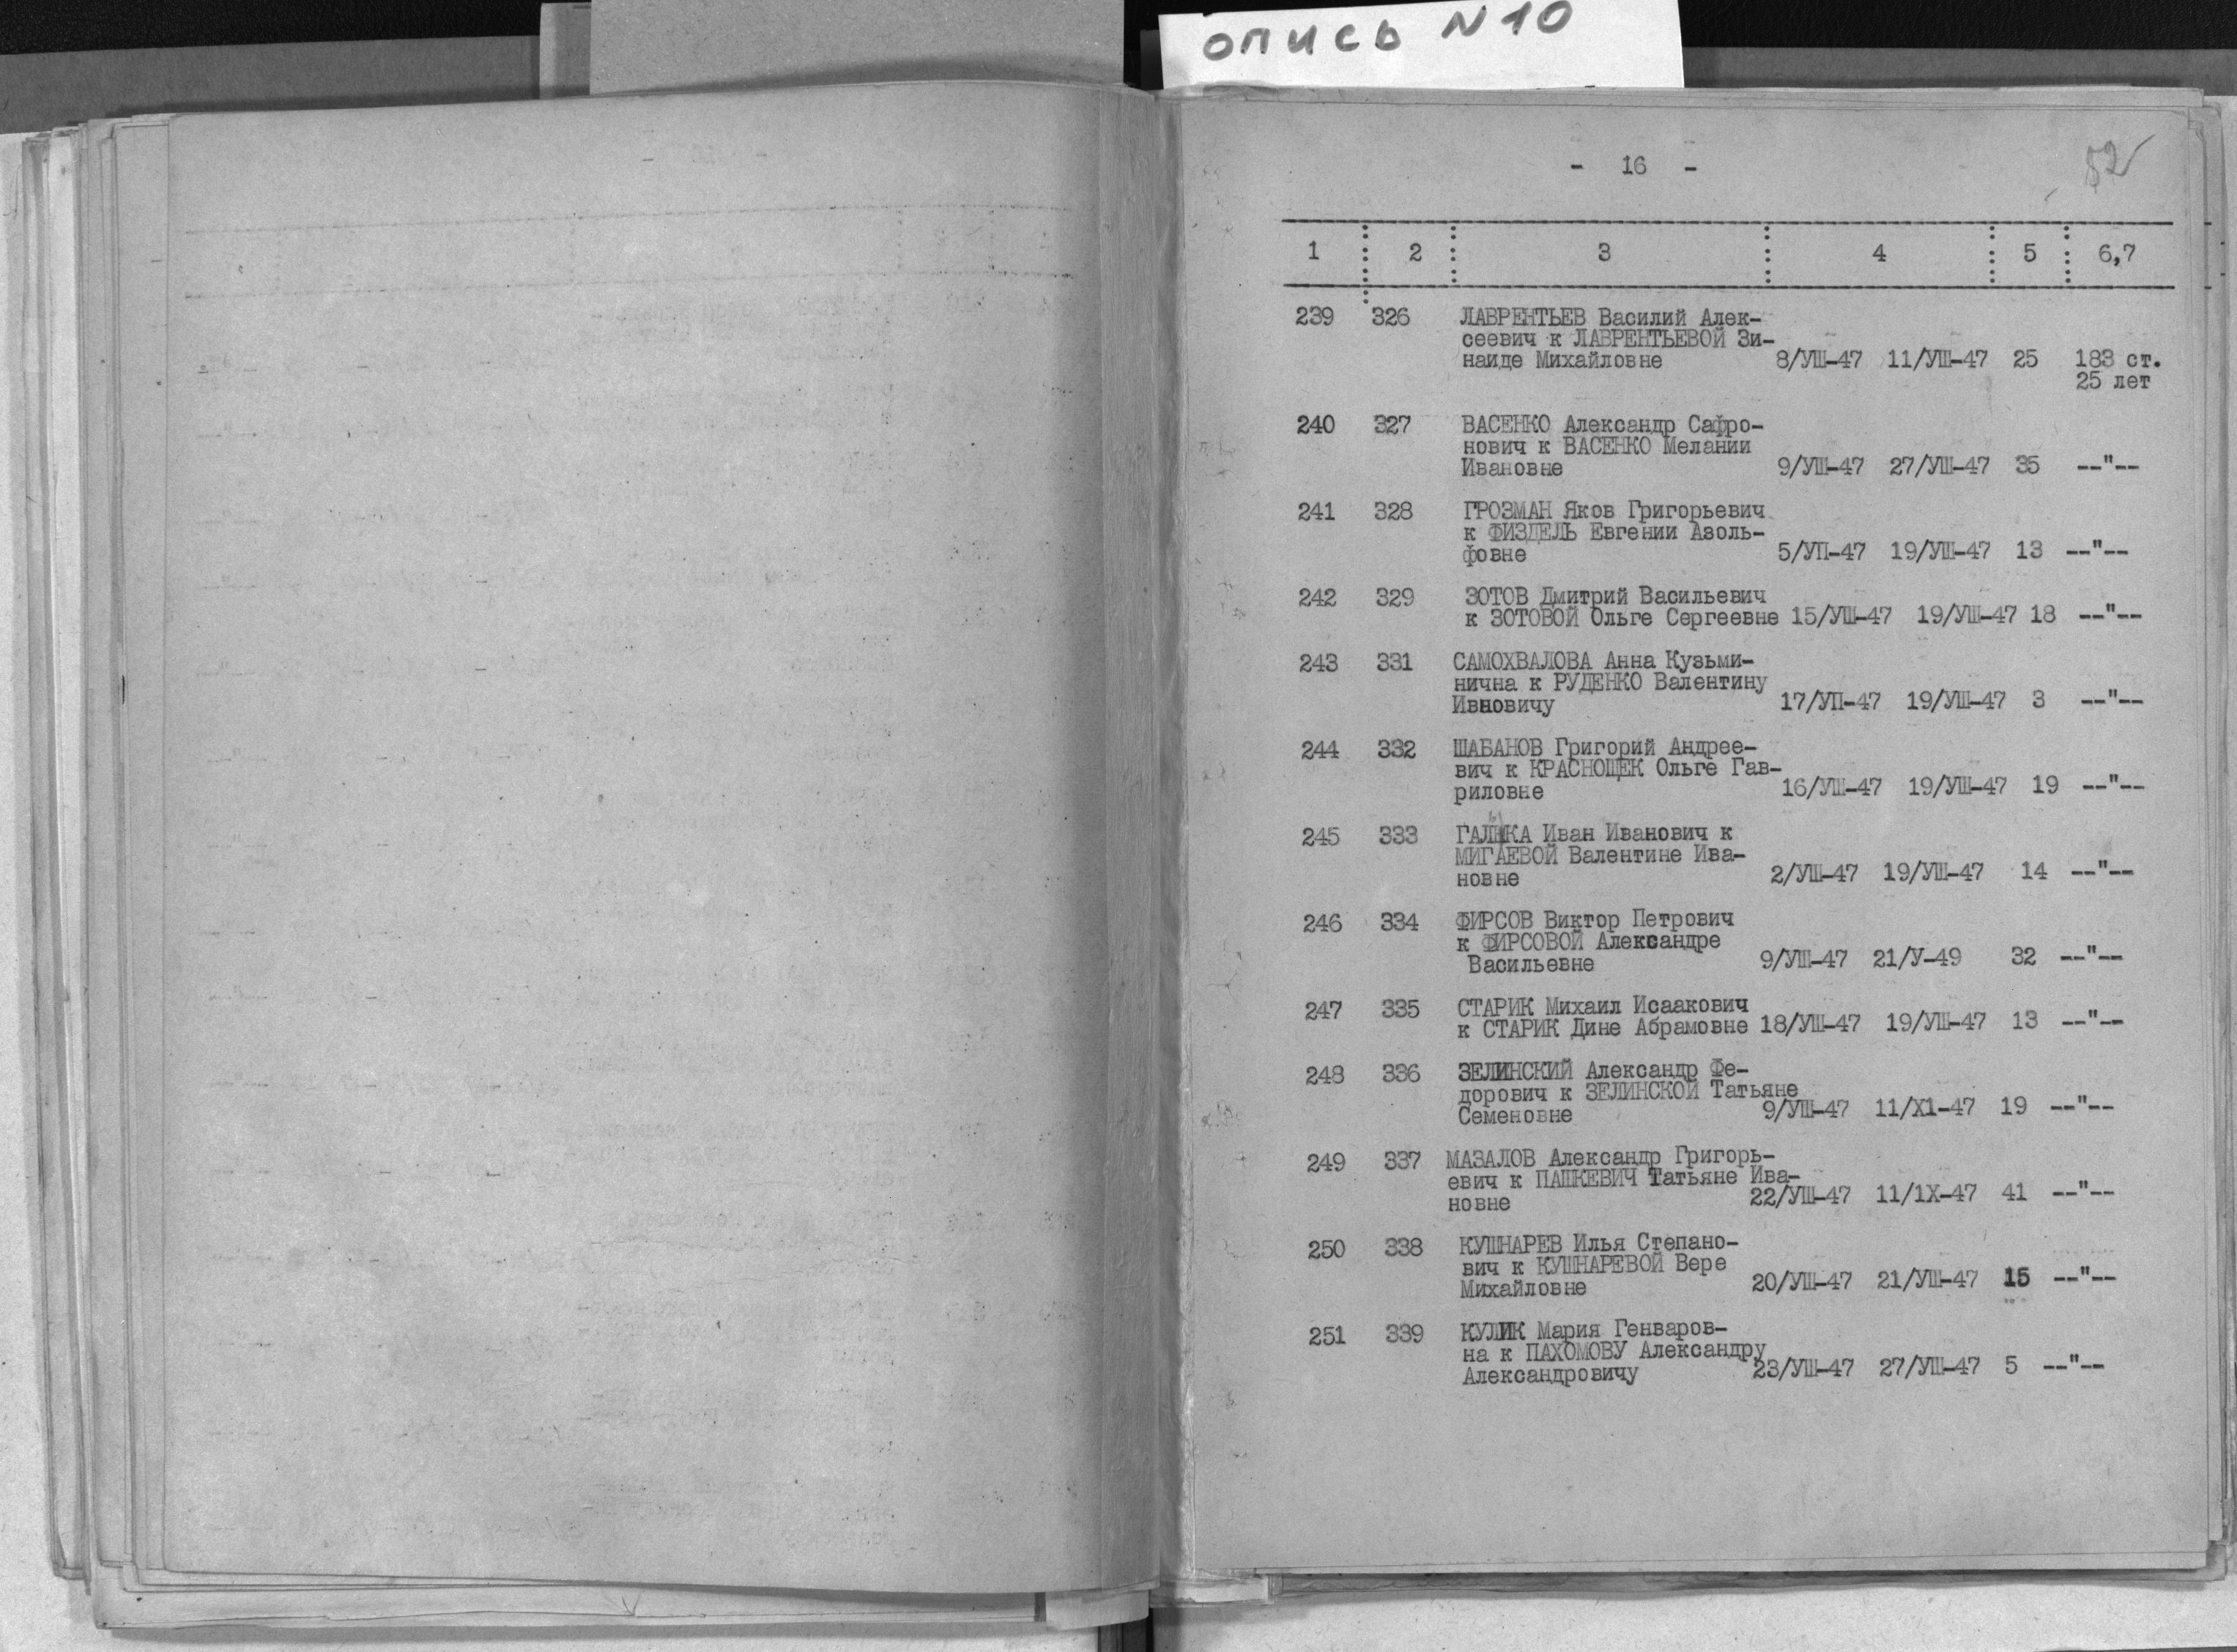 опись N10
- 16 -
52
1 2 3 4 5 6,7
239 326 ЛАВРЕНТЬЕВ Василий Алек-
сеевич к ЛАВРЕНТЬЕВОЙ Зи-
наиде Михайловне 8/УШ-47 11/УШ-47 25 183 ст.
25 лет
240 327 ВАСЕНКО Александр Сафро-
нович к ВАСЕНКО Мелании
Ивановне 9/УШ-47 27/УШ-47 35 --"--
241 328 ГРОЗМАН Яков Григорьевич
к ФИЗДЕЛЬ Евгении Азоль-
фовне 5/УП-47 19/УШ-47 13 --"--
242 329 ЗОТОВ Дмитрий Васильевич
к ЗОТОВОЙ Ольге Сергеевне 15/УШ-47 19/УШ-47 18 --"--
243 331 САМОХВАЛОВА Анна Кузьми-
нична к РУДЕНКО Валентину
Ивновичу 17/УП-47 19/УШ-47 3 --"--
244 332 ШАБАНОВ Григорий Андрее-
вич к КРАСНОЩЕК Ольге Гав-
риловне 16/УШ-47 19/УШ-47 19 --"--
245 333 Иван Иванович к
МИГАЕВОЙ Валентине Ива-
новне 2/УШ-47 19/УШ-47 14 --"--
246 334 ФИРСОВ Виктор Петрович
к ФИРСОВОЙ Александре
Васильевне 9/УШ-47 21/У-49 32 --"--
247 335 СТАРИК Михаил Исаакович
к СТАРИК Дине Абрамовне 18/УШ-47 19/УШ-47 13 --"--
248 336 ЗЕЛИНСКИЙ Александр Фе-
дорович к ЗЕЛИНСКОЙ Татьяне
Семеновне 9/УШ-47 11/Х1-47 19 --"--
249 337 МАЗАЛОВ Александр Григорь-
евич к ПАШКЕВИЧ Татьяне Ива-
новне 22/УШ-47 11/1Х-47 41 --"--
250 338 КУШНАРЕВ Илья Степано-
вич к КУШНАРЕВОЙ Вере
Михайловне 20/УШ-47 21/УШ-47 15 --"--
251 339 КУЛИК Мария Генваров-
на к ПАХОМОВУ Александру
Александровичу 23/УШ-47 27/УШ-47 5 --"--